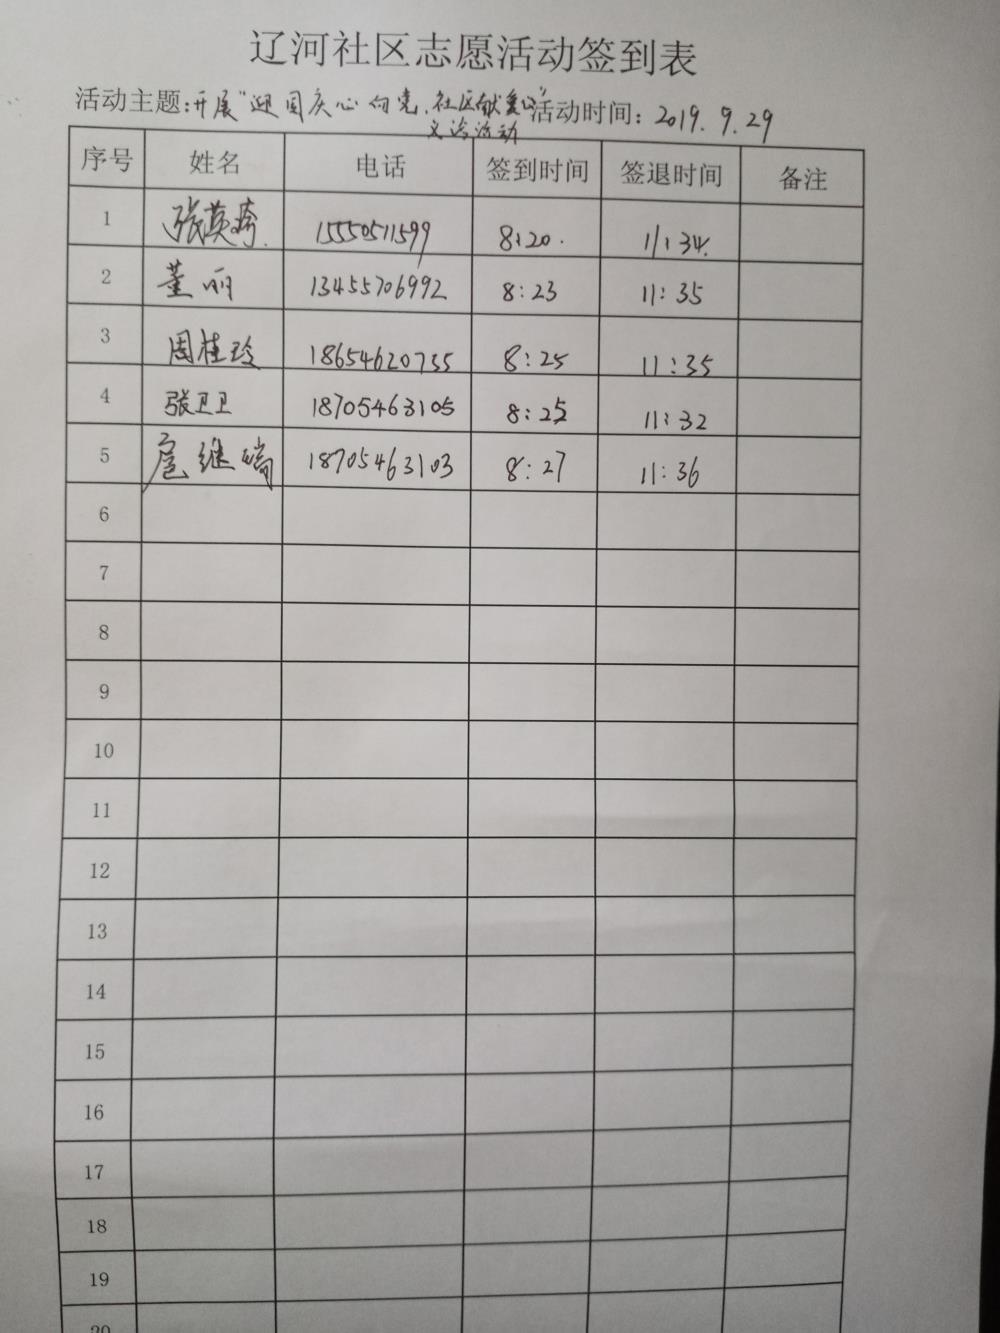 辽河社区志愿活动签到表
活动主题:开展“迎国庆心向党.社区献爱心” 活动时间: 2019.9.29
义诊活动
序号 姓名 电话 签到时间 签退时间 备注
1 张英 15550511599 8:20. 11:34.
2 董丽 13455706992 8:23 11:35
3 周桂玲 18654620755 8:25 11:35
4 张卫卫 18705463105 8:25 11:32
5 继 18705463103 8:27 11:36
6
7
8
9
10
11
12
13
14
15
16
17
18
19
20